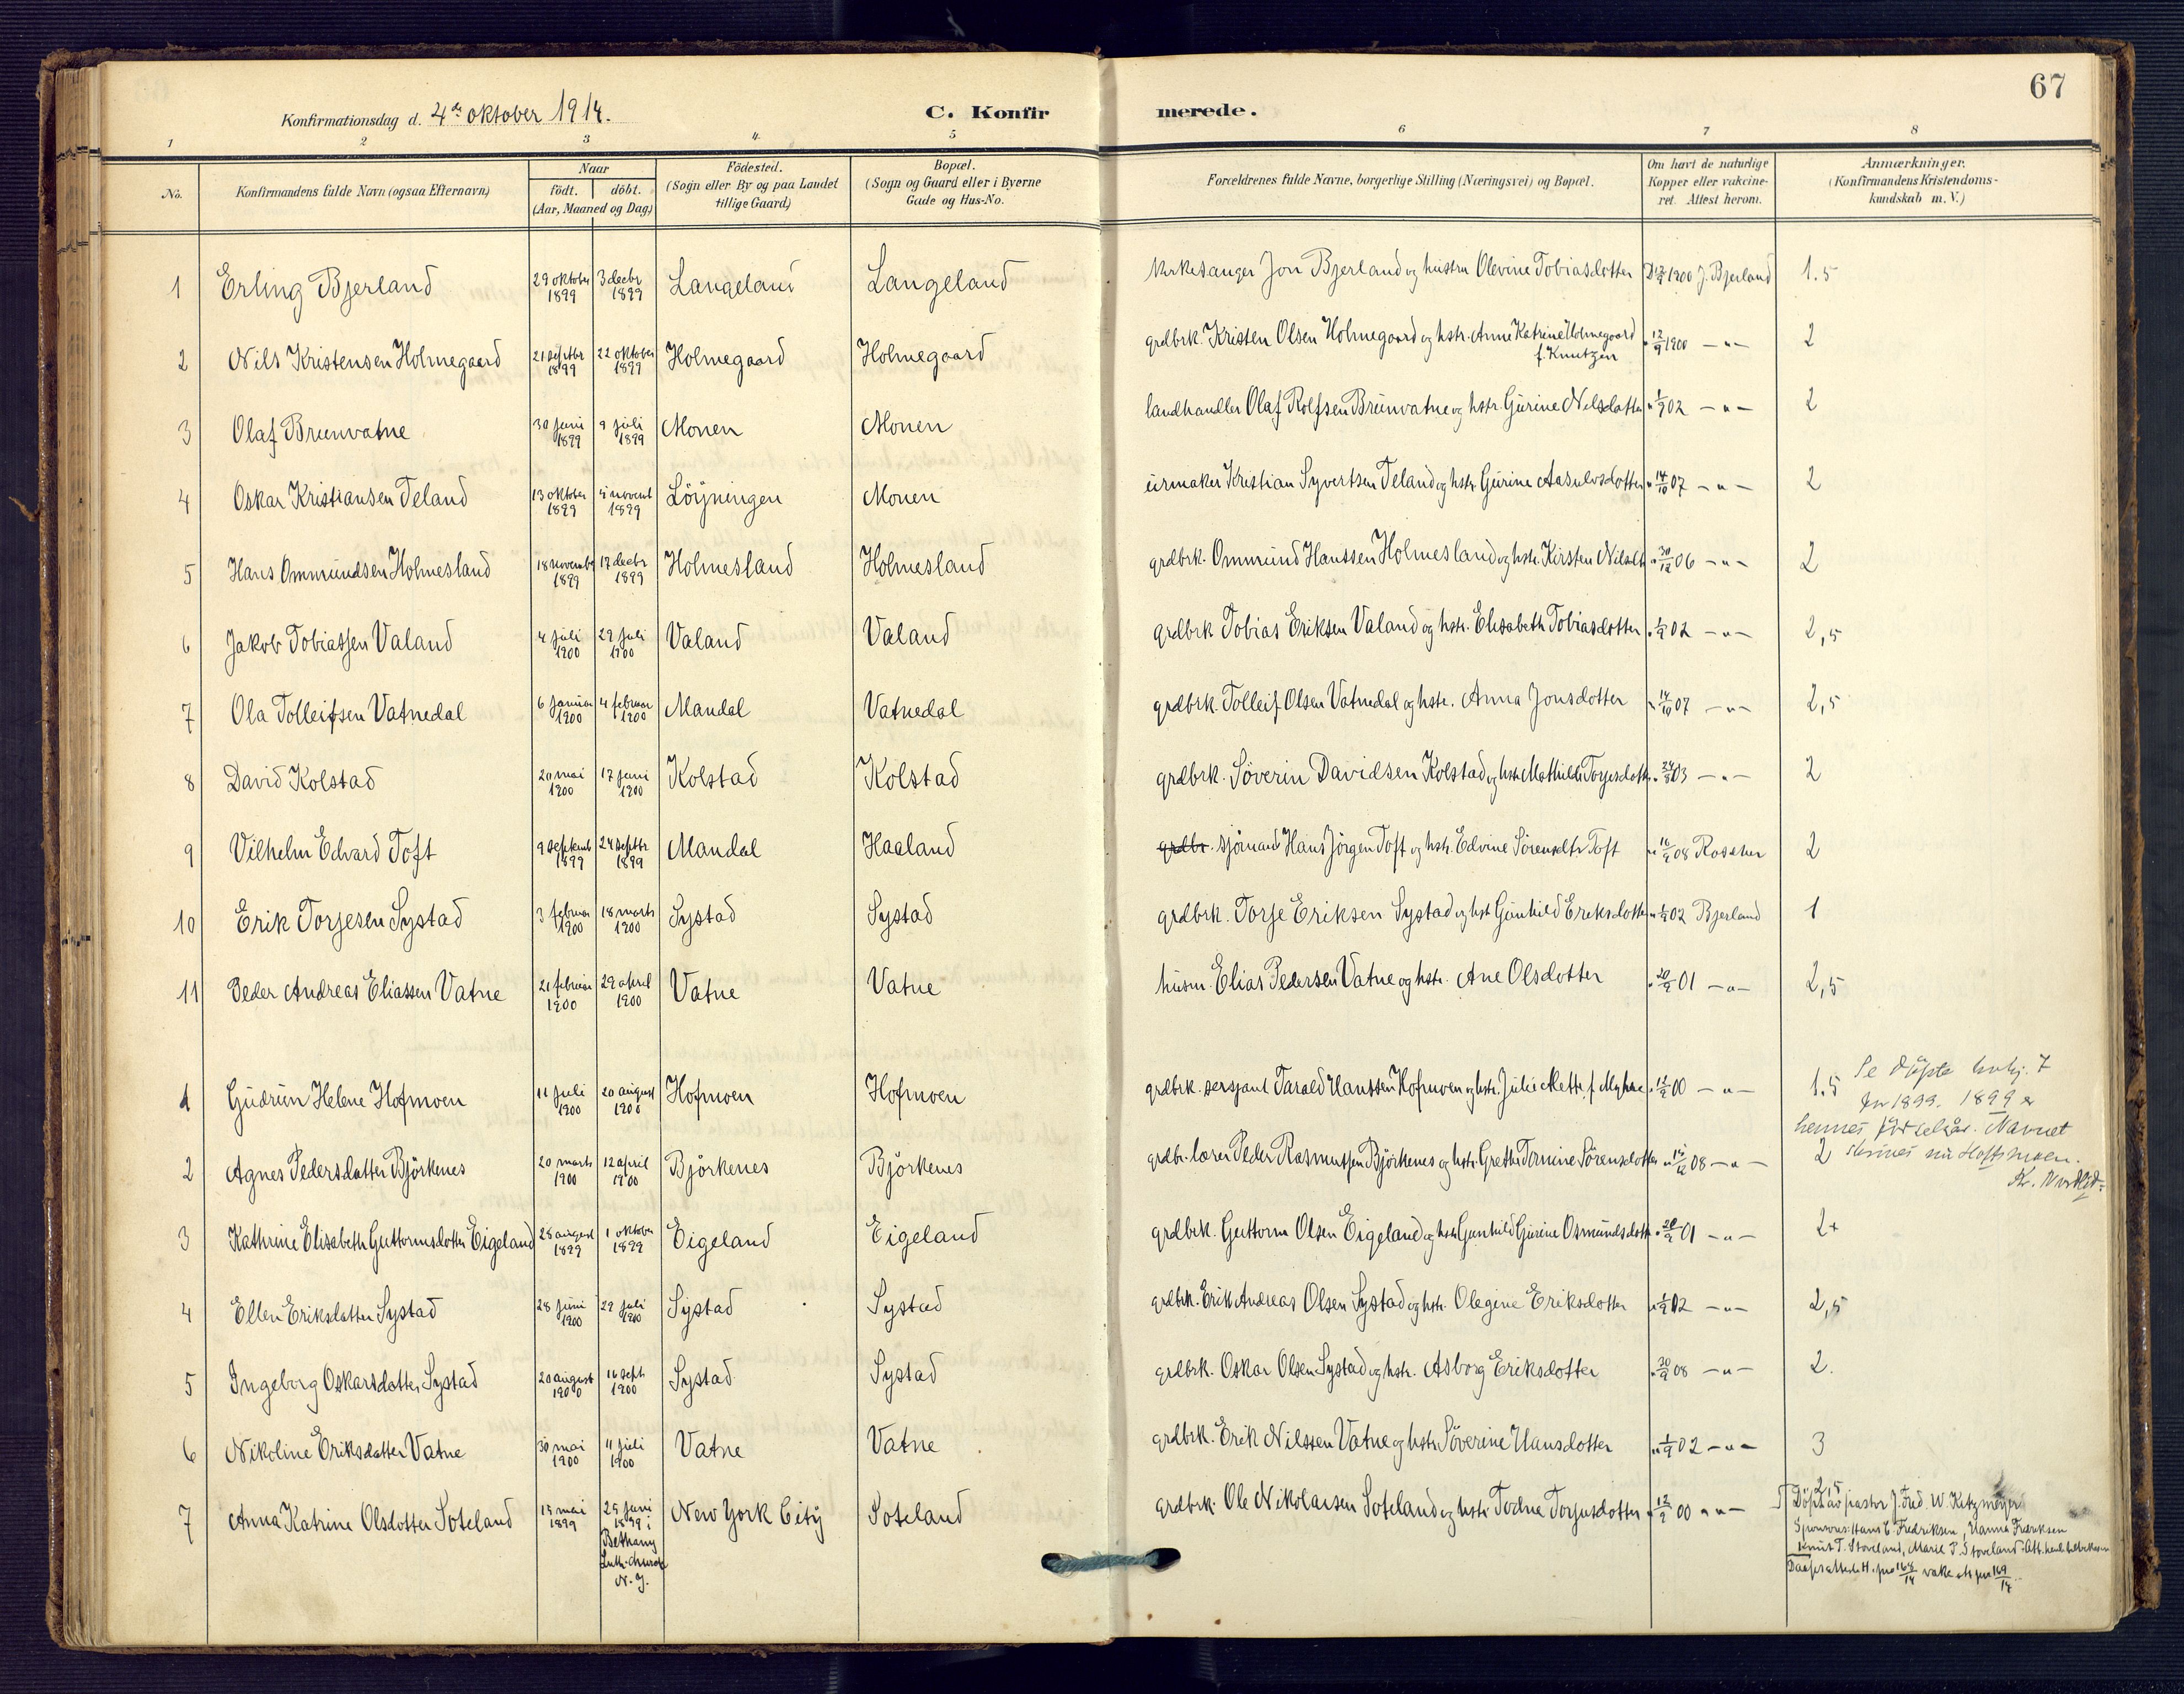 67
Konfirmationsdag d. 4de oktober 1914.
C. Konfir merede.
1 2 3 4. 5 6 7 8
No. Konfirmandens fulde Navn (ogsaa Efternavn) Naar födt. döbt. (Aar, Maaned og Dag) Födested. (Sogn eller By og paa Landet tillige Gaard) Bopæl. (Sogn og Gaard eller i Byerne Gade og Hus-No. Forældrenes fulde Navne, borgerlige Stilling (Næringsvei) og Bopæl. Om havt de naturlige Kopper eller vakcineret. Attest herom. Anmærkninger. (Konfirmandens Kristendomskundskab m. V.)
1 Erling Bjerland 29 oktober 1899 3 decbr 1899 Langeland Langeland Kirkesanger Jon Bjerland og hustru Olevine Tobiasdotter 1900 J. Bjerland 1.5
2 Nils Kristensen Holmegaard 21 septbr 1899 22 oktober 1899 Holmegaard Holmegaard grdbrk. Kristen Olsen Holmegaard og hstr. Anne Katrine Holmegaard f. Knutzen " 12/9 1900 – " – 2
3 Olaf Brunvatne 30 juni 1899 9 juli 1899 Monen Monen landhandler Olaf Rolfsen Brunvatne og hstr. Gurine Nilsdotter " 1/9 02 – " – 2
4 Oskar Kristiansen Teland 13 oktober 1899 novemb 1899 Löjningen Monen urmaker Kristian Syvertsen Teland og hstr. Gurine Aasulvsdotter " 14/10 07 – " – 2
5 Hans Ommundsen Holmesland 18 novembr 1899 17 decbr 1899 Holmesland Holmesland grdbrk. Ommund Hanssen Holmesland og hstr. Kirsten Nilsdtr " 30/12 06 – " – 2
6 Jakob Tobiassen Valand 4 juli 1900 29 juli 1900 Valand Valand grdbrk Tobias Eriksen Valand og hstr. Elisabeth Tobiasdotter " 1/9 02 – " – 2,5
7 Ola Tolleifsen Vatnedal 6 januar 1900 4 februar 1900 Mandal Vatnedal grdbrk. Tolleif Olsen Vatnedal og hstr. Anna Jonsdotter " 14/10 07 – " – 2,5
8 David Kolstad 20 mai 1900 17 juni 1900 Kolstad Kolstad grdbrk. Söverin Davidsen Kolstad og hstr Mathilde Torjesdottr " 03 – " – 2
9 Vilhelm Edvard Toft 9 septemb 1899 24 septbr 1899 Mandal Haaland grdbr. sjömand Hans Jörgen Toft og hstr. Edvine Sörensdtr Toft " 08 Roscher 2
10 Erik Torjesen Systad 3 februar 1900 18 marts 1900 Systad Systad grdbrk. Torje Eriksen Systad og hstr Gunhild Eriksdotter " 1/9 02 Bjerland 1
11 Peder Andreas Eliassen Vatne 21 februar 1900 29 april 1900 Vatne Vatne husm. Elias Pedersen Vatne og hstr. Ane Olsdotter " 20/9 01 – " – 2,5
1 Gudrun Helene Hofmoen 11 juli 1900 20 august 1900 Hofmoen Hofmoen grdbrk. sersjant Tarald Hanssen Hofmoen og hstr. Julie Mette f. Myhre " 12/9 00 – " – 1.5
Se döpte 7
1899. 1899 er
hennes födselsår. Navnet
skrives nu Hoftsmoen.
2 Agnes Pedersdatter Björkenes 20 marts 1900 12 april 1900 Björkenes Björkenes grdbr. lærer Peder Rasmussen Björkenes og hstr. Grethe Tomine Sörensdotter " 08 – " – 2
3 Kathrine Elisabeth Guttormsdotter Eigeland 28 august 1899 1 oktober 1899 Eigeland Eigeland grdbrk. Guttorm Olsen Eigeland og hstr Gunhild Gurine Osmundsdottr " 20/9 01 – " – 2+
4 Ellen Eriksdatter Systad 28 juni 1900 29 juli 1900 Systad Systad grdbrk. Erik Andreas Olsen Systad og hstr. Olegine Eriksdotter " 1/9 02 – " – 2,5
5 Ingeborg Oskarsdotter Systad 20 august 1900 16 septr 1900 Systad Systad grdbrk. Oskar Olsen Systad og hstr. Asborg Eriksdotter " 30/9 08 – " – 2.
6 Nikoline Eriksdatter Vatne 30 mai 1900 11 juli 1900 Vatne Vatne grdbrk. Erik Nilssen Vatne og hstr. Söverine Hansdotter " 1/9 02 – " – 3
7 Anna Katrine Olsdotter Soteland 15 mai 1899 25 juni 1899 i Bethany Luth. church N. J. New York City Soteland grdbrk. Ole Nikolaisen Soteland og hstr Todne Torjusdotter " 12/9 00 " " – 2,5
Döpt av pastor J. Fred. W. Kitzmeyer
Sponsors: Hans C. Fredriksen, Hanna Fredriksen
Knut T. Stoveland, Marie P. Stoveland.